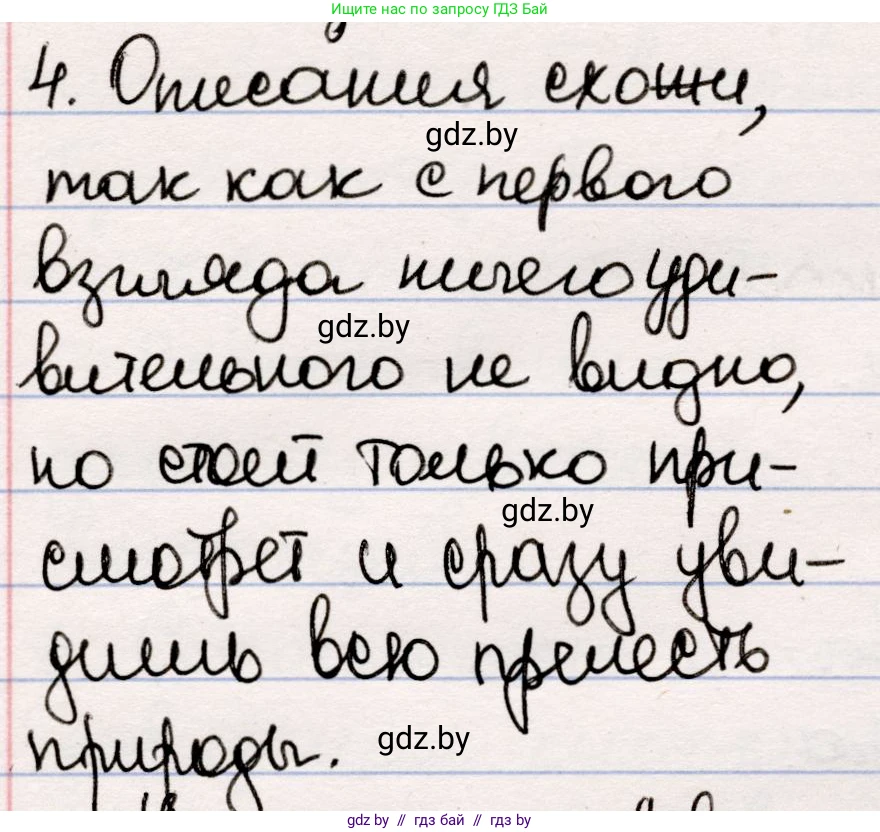 Ищите нас по запросу ГДЗ Бай
4. Описания схожи,
gdz.by
так как с первого
взгляда ничего уди-
gdz.by
вительного не видно,
но стоит только при-
gdz.by
смотрет и сразу уви-
дишь всю прелесть
природы.
gdz.by
gdz by // гдз бай // gdz by